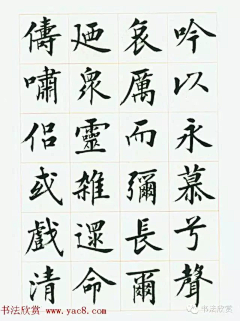 吟以永慕兮聲
哀厲而彌長爾
廼衆靈雜遝命
儔嘯侶或戲清
书法欣赏
www.yac8.com
书法欣赏